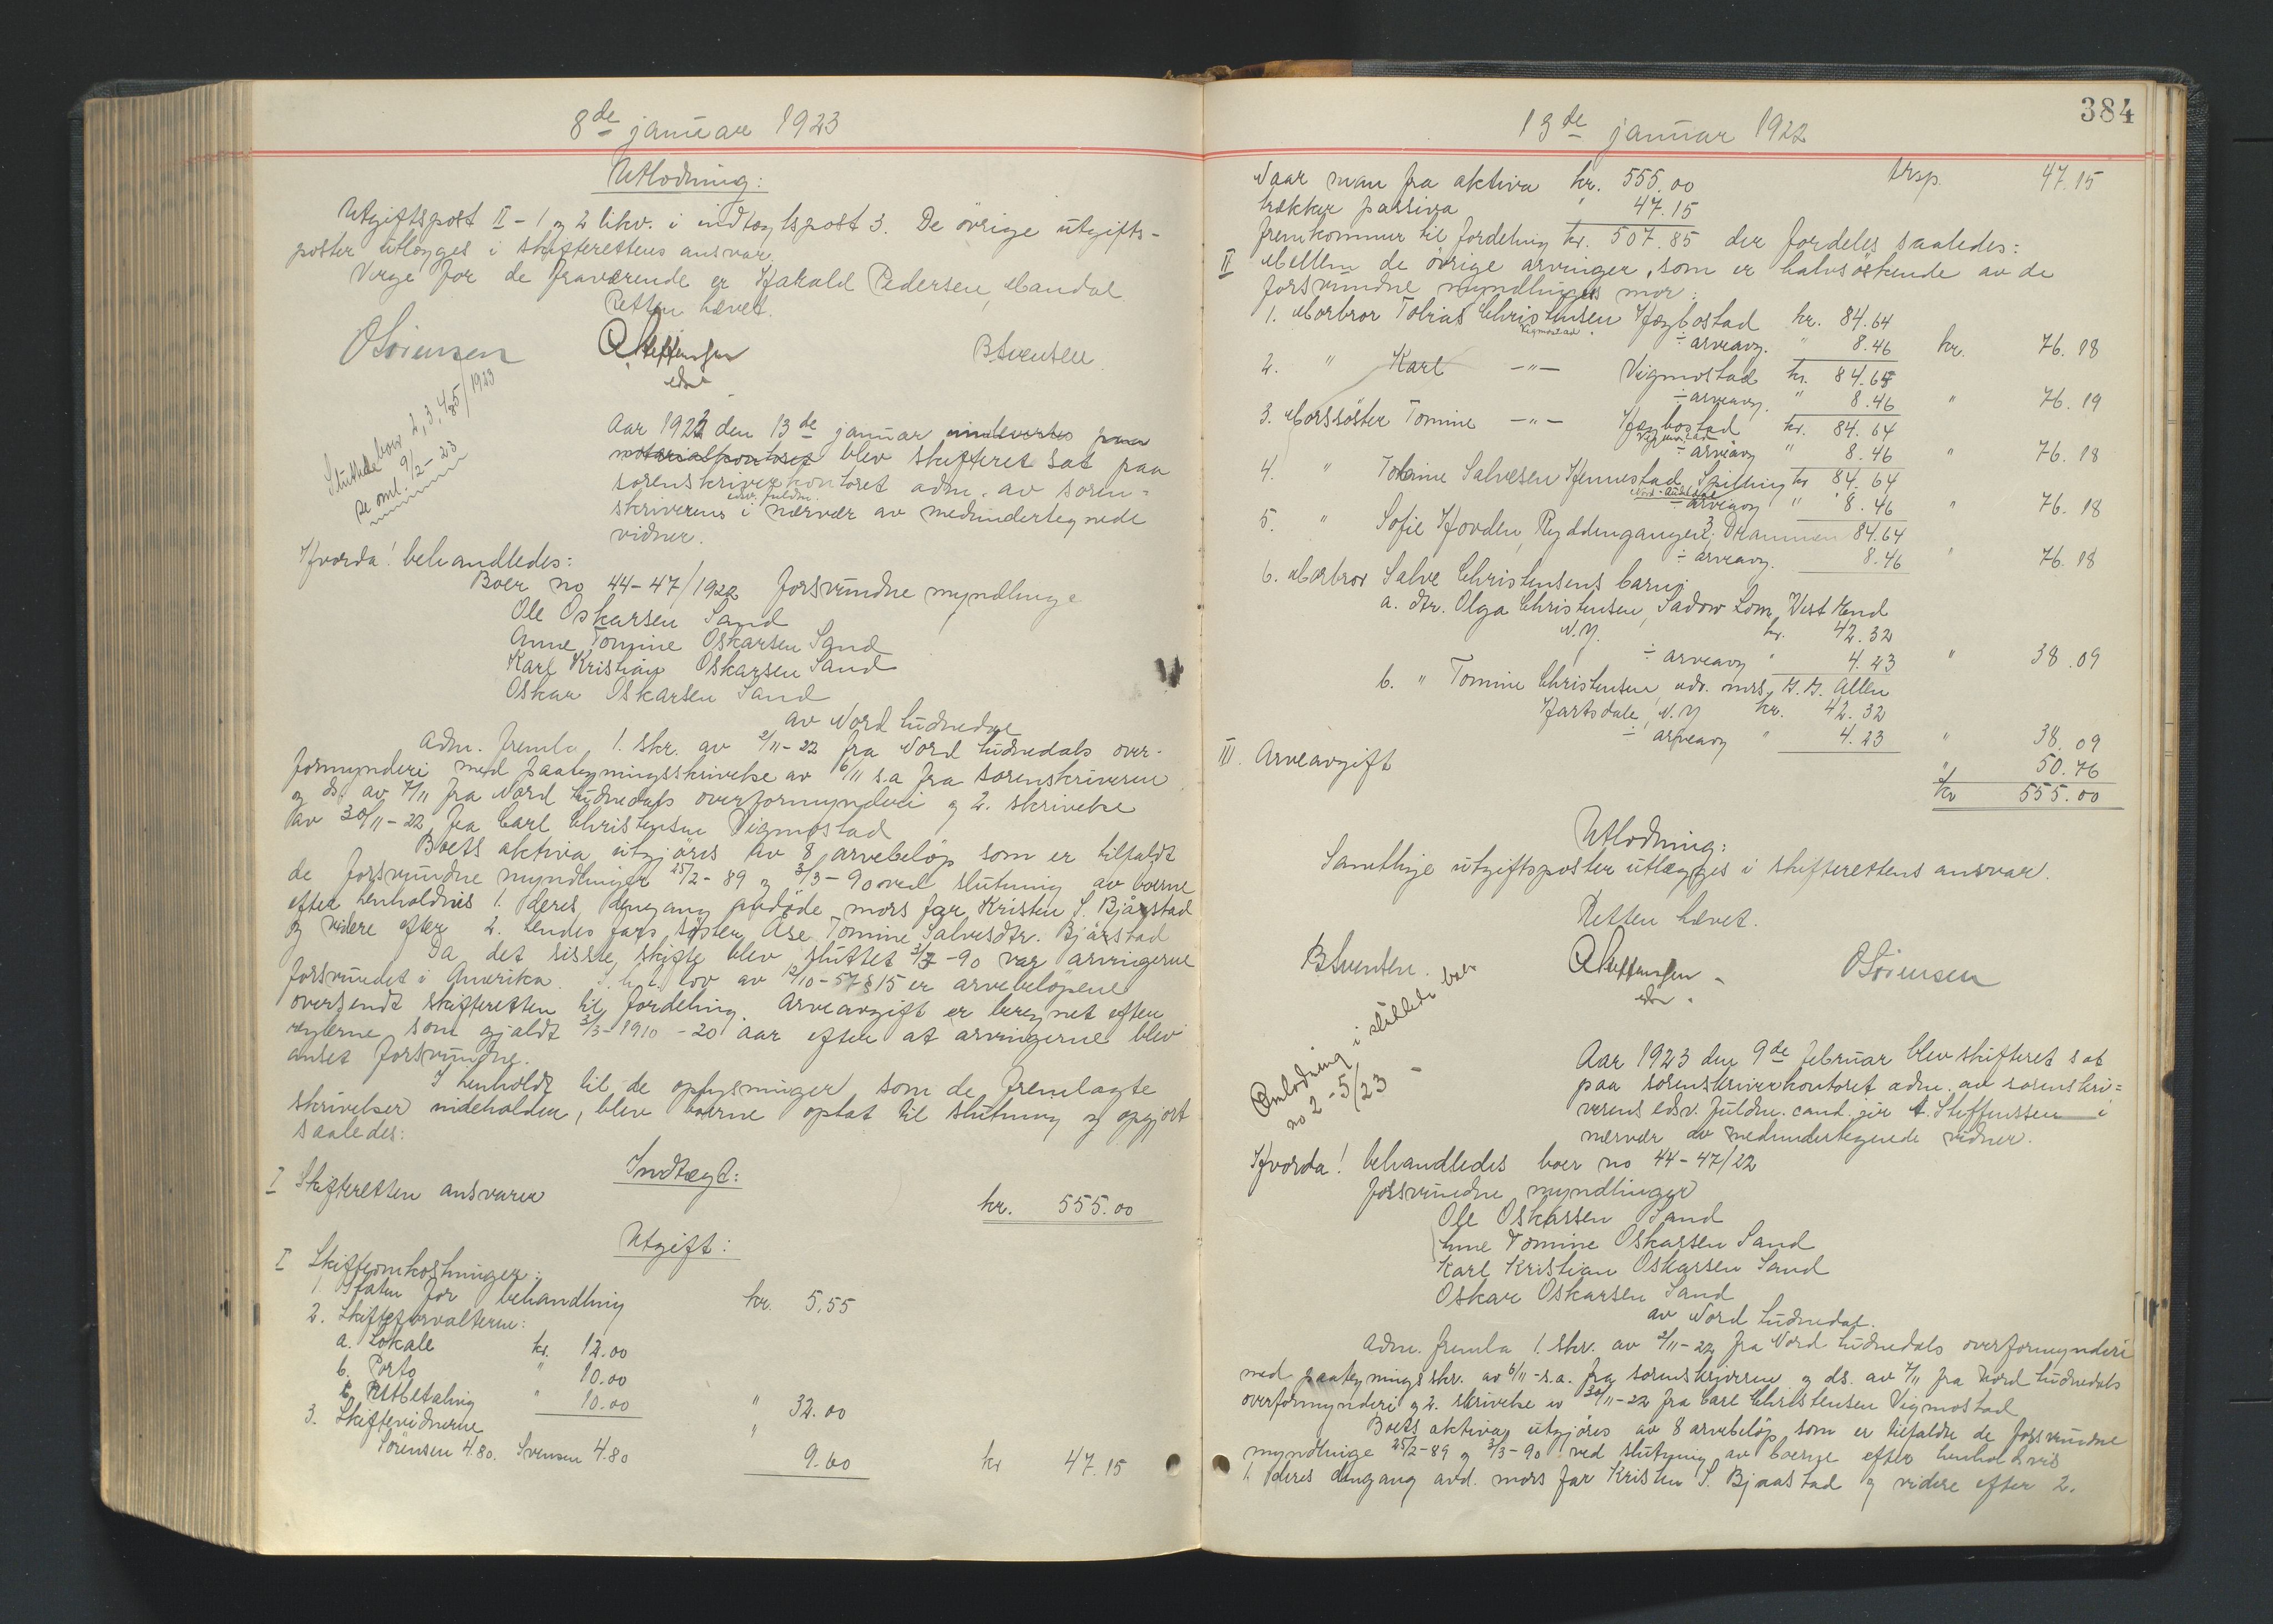 8de januar 1923
Utlodning:
Utgiftspost II - 1 og 2 likv. i indtægtspost 3. De övrige utgifts-
poster utlægges i skifterettens ansvar.
Verge for de fraværende er Harald Pedersen, Mandal.
Retten hævet.
OSörensen
BSvensen
Sluttede boer 2, 3, 4, 5/1923
se oml. 9/2-23
Aar 1922 den 13de januar
blev skifteret sat paa
sorenskriverkontoret adm. av soren-
edsv. fuldm.
skriverens i nærvær av medundertegnede
vidner.
Hvorda! behandledes:
Boer no 44-47/1922 forsvundne myndlinge
Ole Oskarsen Sand
Anne Tomine Oskarsen Sand
Karl Kristian Oskarsen Sand
Oskar Oskarsen Sand
av Nord Audnedal
Adm. fremla 1. skr. av 2/11-22 fra Nord Audnedals over-
formynderi med paategningsskrivelse av 6/11 s.a fra sorenskriveren
og ds. av 7/11 fra Nord Audnedals overformynderi og 2. skrivelse
av 30/11-22 fra Carl Christensen Vigmostad
Boets aktiva utgjöres av 8 arvebelöp som er tilfaldt
de forsvundne myndlinger 25/2-89 og 3/3-90 ved slutning av boerne
efter henholdvis 1. deres dengang avdöde mors far Kristen S. Bjåstad
og videre efter 2. hendes fars söster Åse Tomine Salvesdtr. Bjåstad
Da det sisste skifte blev sluttet 3/3-90 var arvingerne
forsvundet i Amerika. I h. t. lov av 12/10-57 § 15 er arvebelöpene
oversendt skifteretten til fordeling. Arveavgift er beregnet efter
reglerne som gjaldt 3/3-1910 - 20 aar efter at arvingerne blev
anset forsvundne.
I henhold til de oplysninger som de fremlagte
skrivelser indeholder, blev boerne optat til slutning og opgjort
saaledes:
Indtægt:
I Skifteretten ansvarer kr. 555.00
Utgift:
I Skifteomkostninger:
1. Staten for behandling kr. 5.55
2. Skifteforvalteren:
a. Lokale kr. 12.00
b. Porto " 10.00
c. Utbetaling " 10.00 " 32.00
3. Skiftevidnerne "
Sörensen 4.80. Svensen 4.80 9.60 kr 47.15
384
13de januar 1922
Naar man fra aktiva kr. 555.00 trsp. 47.15
trækker passiva " 47.15
fremkommer til fordeling kr. 507.85 der fordeles saaledes:
II Mellem de övrige arvinger, som er halvsöskende av de
forsvundne myndlinges mor:
1. Morbror Tobias Christensen Hægbostad kr. 84.64
Vigmostad
÷ arveavg. " 8.46 kr. 76.18
2. " Karl -"- Vigmostad kr. 84.65
÷ arveavg. " 8.46 " 76.19
3. Morssöster Tomine -"- Hægbostad kr. 84.64
Vigmostad
÷ arveavg " 8.46 " 76.18
4. " Salvesen Hennestad, Spilling kr 84.64
Nord-Audnedal
÷ arveavg " 8.46 " 76.18
5. " Sofie Hovden, Ryddingangen 3, Drammen 84.64
÷ arveavg. 8.46 " 76.18
6. Morbror Salve Christensens barn:
a. dtr. Olga Christensen, Sadow Lom, West Hend
N.Y. kr. 42.32
÷ arveavg " 4.23 " 38.09
b. " Tomine Christensen, adr. mrs. H. H. Allen
Hartsdale, N.Y kr. 42.32
÷ arveavg " 4.23 " 38.09
III. Arveavgift " 50.76
kr 555.00
Utlodning:
Samtlige utgiftsposter utlægges i skifterettens ansvar.
Retten hævet.
BSvensen.
OSörensen
Omlodning i sluttede boer
no 2-5/23
Aar 1923 den 9de februar blev skifteret sat
paa sorenskriverkontoret adm. av sorenskri-
verens edsv. fuldm. cand. jur A. Steffenssen i
nærvær av medundertegnede vidner.
Hvorda! behandledes boer no 44-47/22
forsvundne myndlinger
Ole Oskarsen Sand
Anne Tomine Oskarsen Sand
Karl Kristian Oskarsen Sand
Oskar Oskarsen Sand
av Nord Audnedal.
Adm. fremla 1. skr. av 2/11-22 fra Nord Audnedals overformynderi
med paategningsskr. av 6/11-s.a. fra sorenskriveren og ds. av 7/11 fra Nord Audnedals
overformynderi og 2. skrivelse av 30/11-22 fra Carl Christensen Vigmostad
Boets aktiva utgjöres av 8 arvebelöp som er tilfaldt de forsvundne
myndlinge 25/2-89 og 3/3-90 ved slutning av boerne efter henholdsvis
1. deres dengang avd. mors far Kristen S. Bjaastad og videre efter 2.